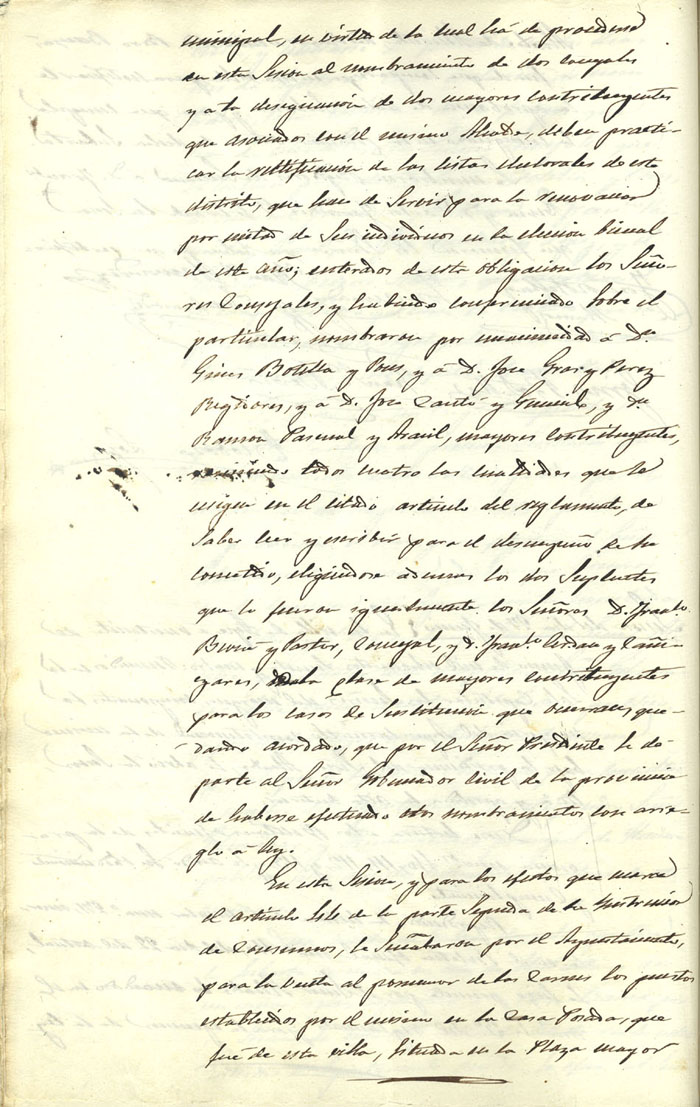 municipal, en virtud de la cual há de procederse
en esta Sesion al nombramiento de dos concejales
y a la designacion de dos mayores contribuyentes
que asociados con el mismo Alcalde, deben practi-
car la rettificacion de las listas electorales de este
distrito, que han de Servir para la renovacion
por mitad de Sus individuos en la eleccion bienal
de este año; enterados de esta obligacion los Seño-
res Concejales, y habiendo conferenciado Sobre el
particular, nombraron por unanimidad á Dn.
Gines Botella y Pous, y á D. Jose Gras y Perez
y á D. Jose Cantó y y Dn.
Ramon Pascual y Arasil, mayores contribuyentes,
reuniendo todos cuatro las cualidades que se
exigen en el citado articulo del reglamento, de
Saber leer y escribir para el desempeño de su
cometido, eligiendose ademas los dos Suplentes
que lo fueron igualmente los Señores D. Franco.
y Pastor, Concejal, y D. Franco. Cerdan y Cañi-
zares, de la clase de mayores contribuyentes
para los casos de Sustitucion que ocurran; que-
dando acordado, que por el Señor Presidente se dé
parte al Señor Gobernador civil de la provincia
de haberse efectuado dhos nombramientos con arre-
glo á ley.
En esta Sesion, y para los efectos que marca
el artículo de la parte Segunda de la Instruccion
de Consumos, se Señalaron por el Ayuntamiento,
para la venta al pormenor de las Carnes los puestos
establecidos por el mismo en la Casa Posada, que
fué de esta villa, Situada en la Plaza mayor